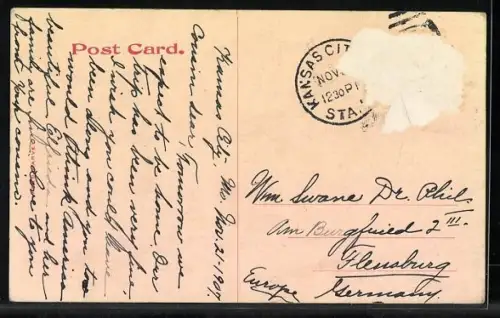 Post Card.
Kansas City Mo. Nov. 21-1907.
Cousin dear, Tomorrow we
expect to be home. Our
trip has been very fine,
I wish you could have
been along and you too
would think America
beautiful. Elfrieda and her
family are fine. Love to you
from your cousins.
KANSAS CIT
NOV
1230P
STA.
Wm Swane Dr. Phil.
Am Burgfried 2 III.
Flensburg
Europe Germany.